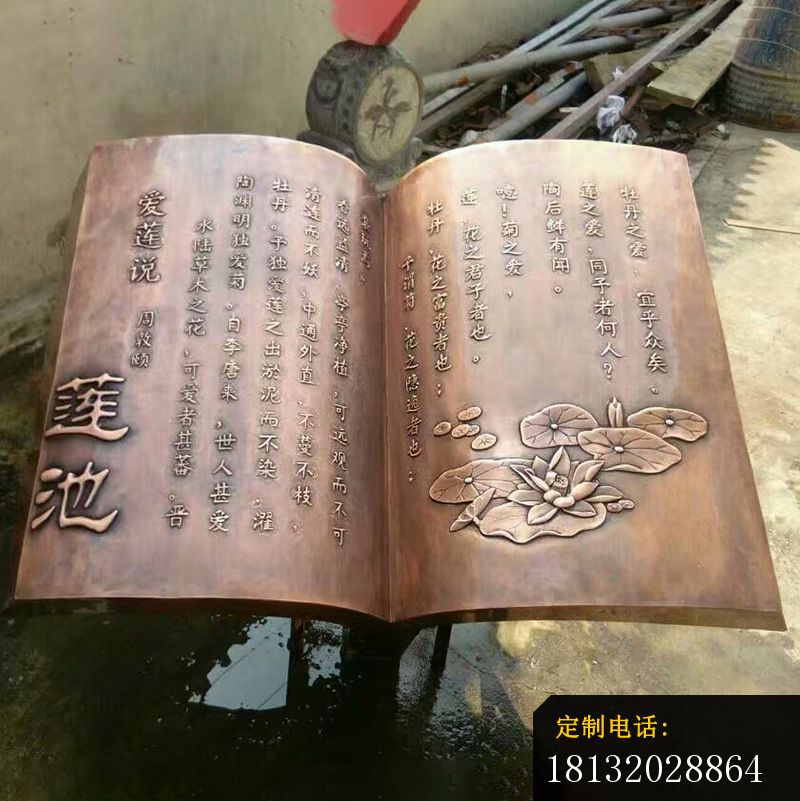 爱莲说
周敦颐
莲池
水陆草木之花，可爱者甚蕃。晋
陶渊明独爱菊。自李唐来，世人甚爱
牡丹。予独爱莲之出淤泥而不染，濯
清连而不妖，中通外直，不蔓不枝，
香远益清，亭亭净植，可远观而不可
亵玩焉。
予谓菊，花之隐逸者也；
牡丹，花之富贵者也；
莲，花之君子者也。
噫！菊之爱，
陶后鲜有闻。
莲之爱，同予者何人？
牡丹之爱，宜乎众矣。
定制电话：
18132028864